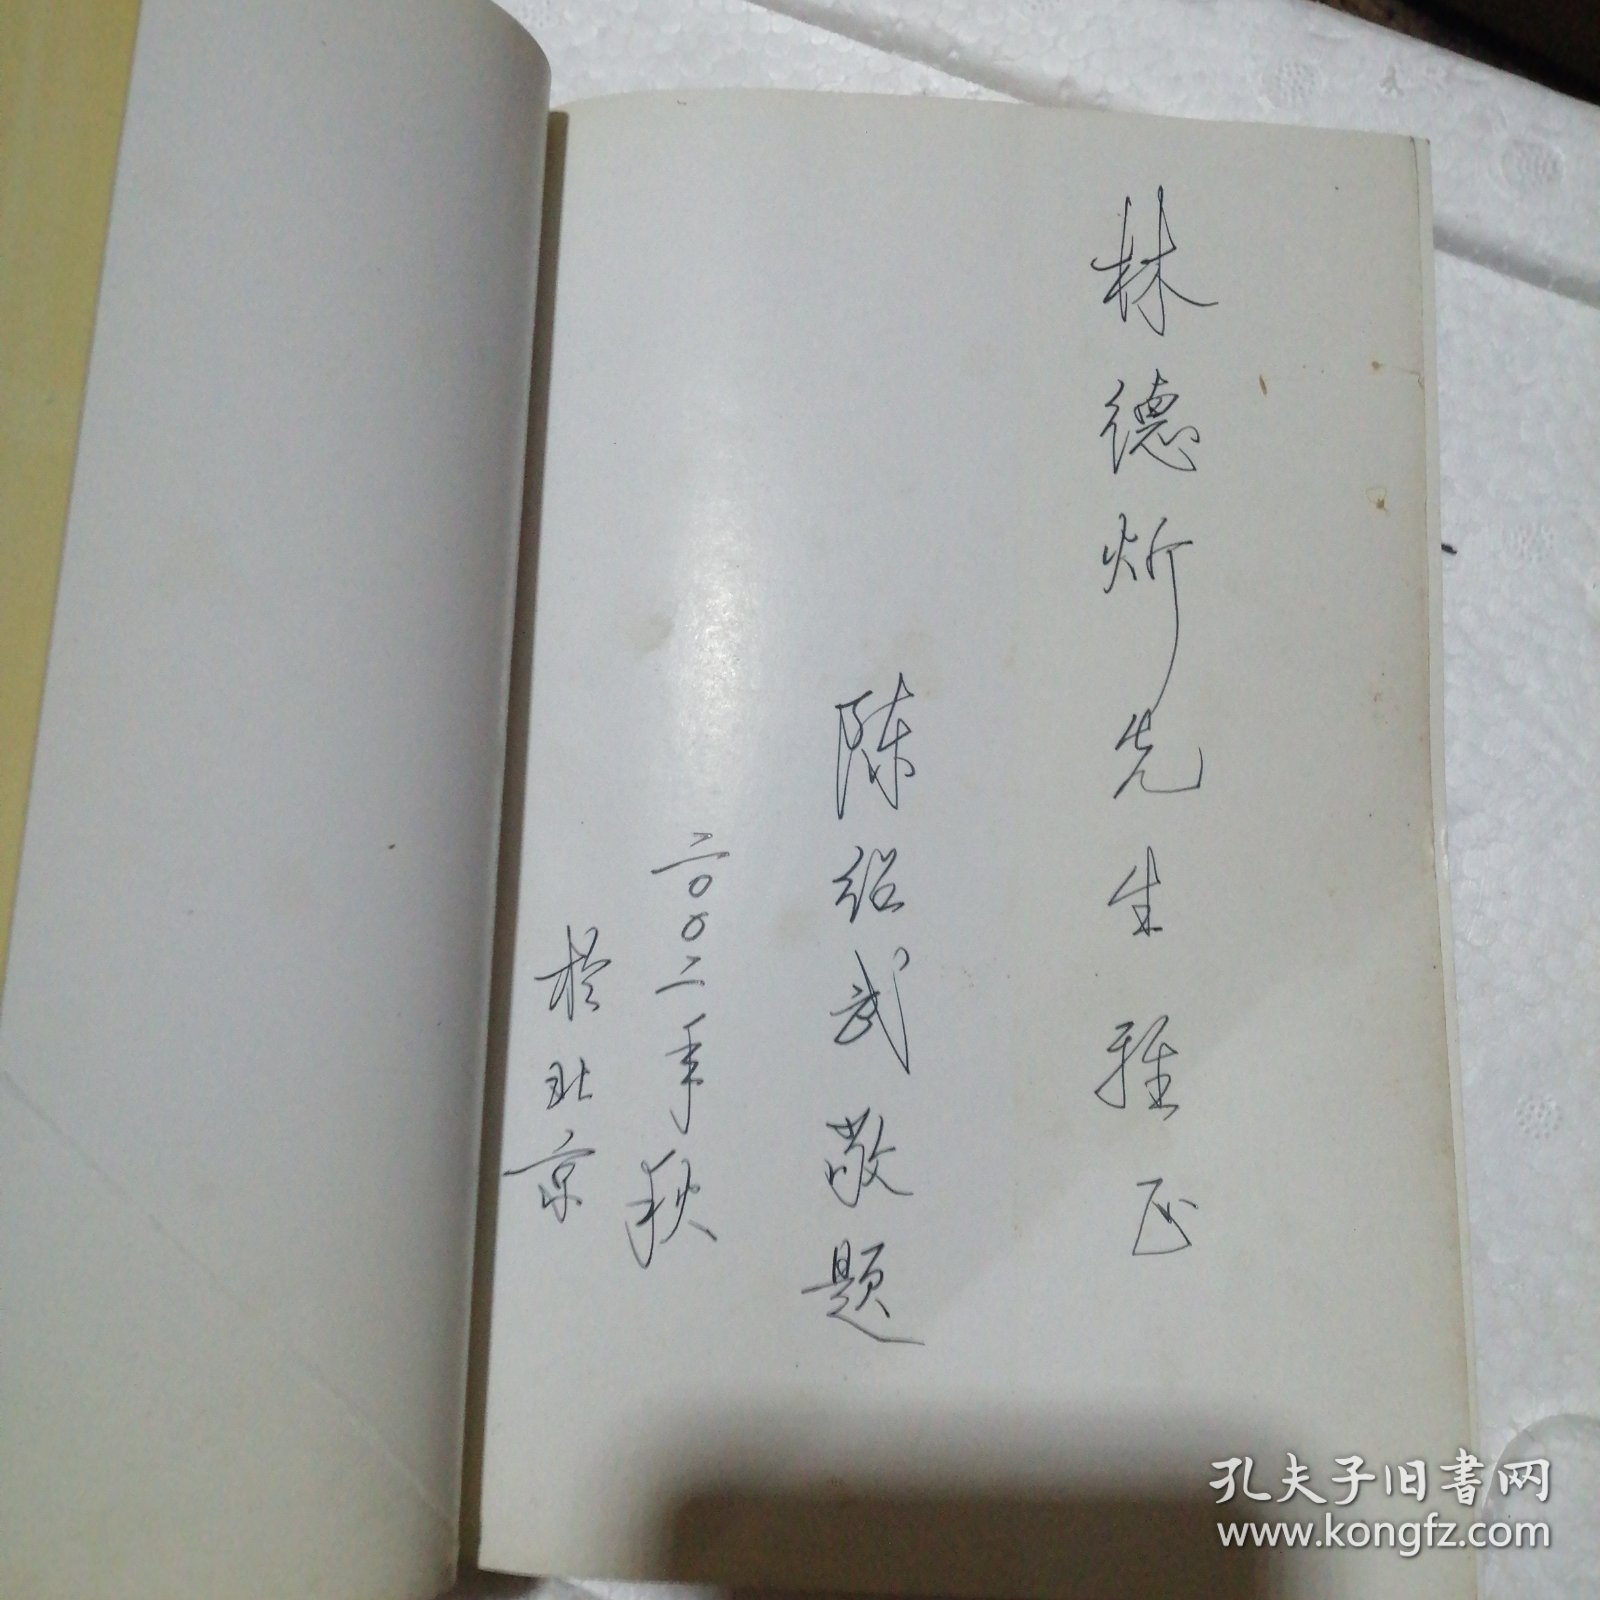 林德炘先生雅正
陈绍武敬题
二〇〇二年秋
於北京
孔夫子旧书网
www.kongfz.com